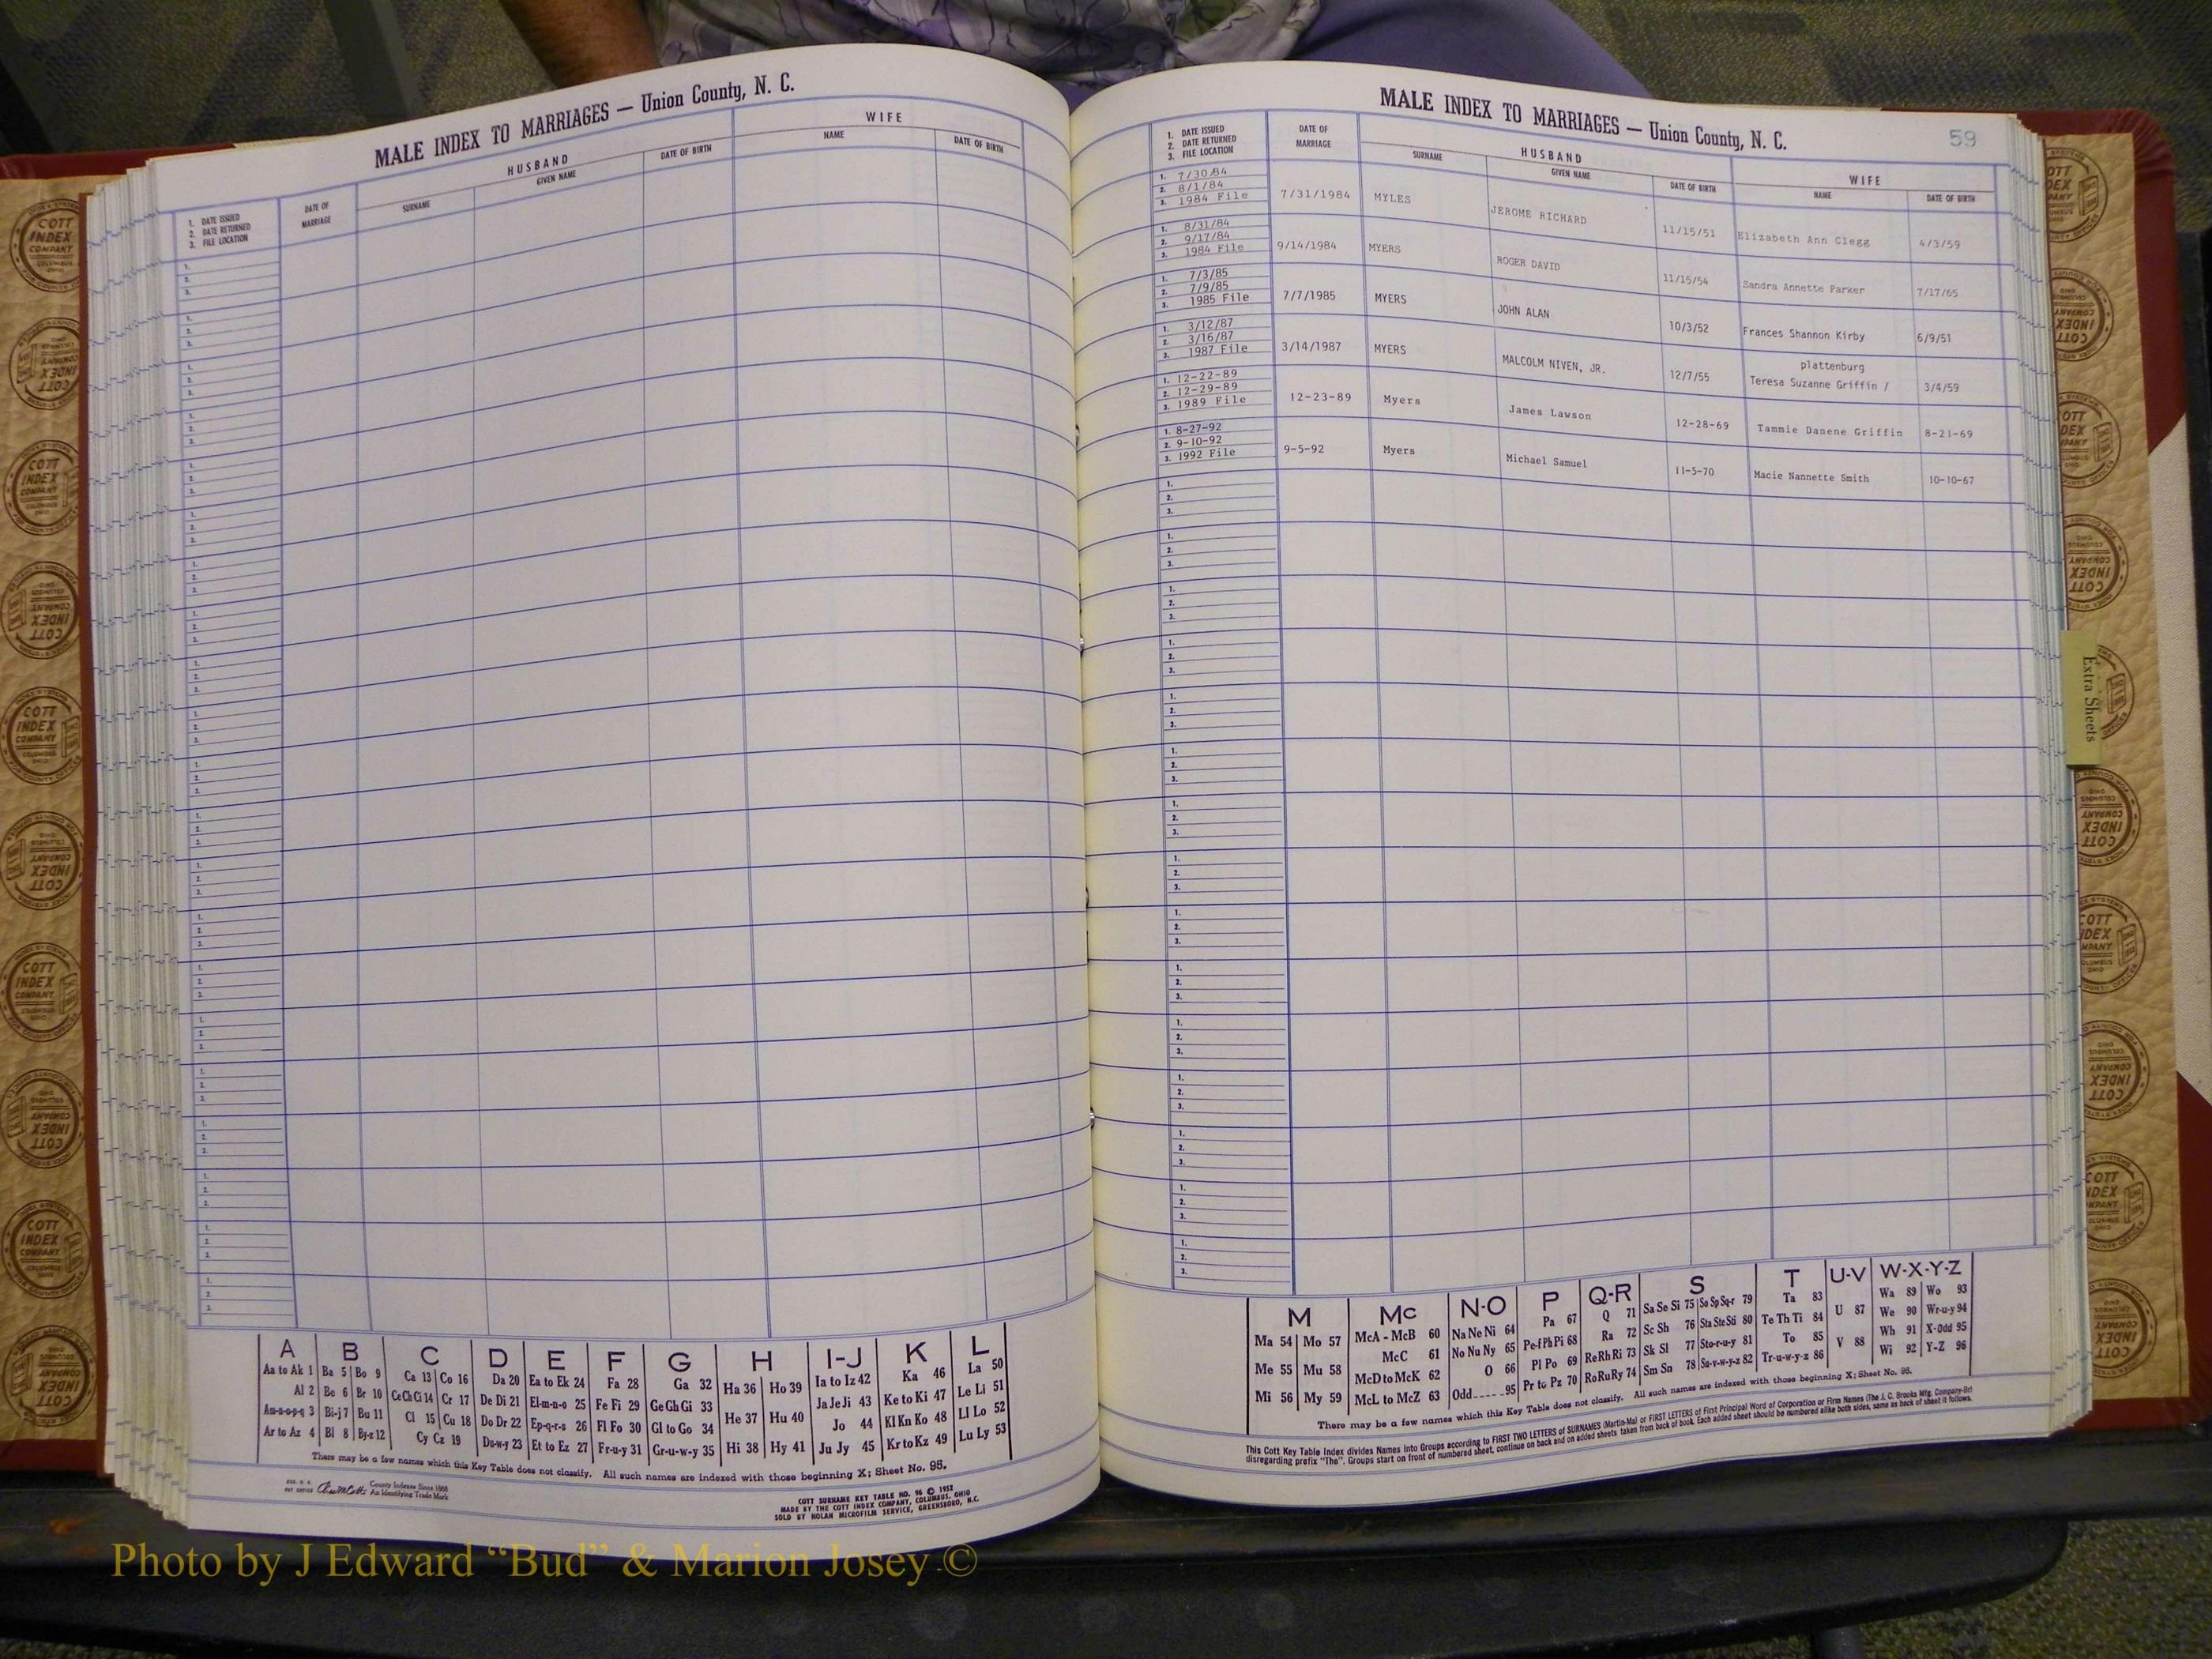 MALE INDEX TO MARRIAGES — Union County, N. C.
1. DATE ISSUED
2. DATE RETURNED
3. FILE LOCATION
DATE OF MARRIAGE
HUSBAND
SURNAME GIVEN NAME DATE OF BIRTH
WIFE
NAME DATE OF BIRTH
A
Aa to Ak 1
Al 2
Am-n-o-p-q 3
Ar to Az 4
B
Ba 5 Bo 9
Be 6 Br 10
Bi-j 7 Bu 11
Bl 8 By-z 12
C
Ca 13 Co 16
Ce Ch Ci 14 Cr 17
Cl 15 Cu 18
Cy Cz 19
D
Da 20
De Di 21
Do Dr 22
Du-w-y 23
E
Ea to Ek 24
El-m-n-o 25
Ep-q-r-s 26
Et to Ez 27
F
Fa 28
Fe Fi 29
Fl Fo 30
Fr-u-y 31
G
Ga 32
Ge Gh Gi 33
Gl to Go 34
Gr-u-w-y 35
H
Ha 36 Ho 39
He 37 Hu 40
Hi 38 Hy 41
I-J
Ia to Iz 42
Ja Je Ji 43
Jo 44
Ju Jy 45
K
Ka 46
Ke to Ki 47
Kl Kn Ko 48
Kr to Kz 49
L
La 50
Le Li 51
Ll Lo 52
Lu Ly 53
There may be a few names which this Key Table does not classify. All such names are indexed with those beginning X; Sheet No. 95.
County Indexes Since 1888
An Identifying Trade Mark
COTT SURNAME KEY TABLE NO. 96 © 1952
MADE BY THE COTT INDEX COMPANY, COLUMBUS, OHIO
SOLD BY NOLAN MICROFILM SERVICE, GREENSBORO, N.C.
MALE INDEX TO MARRIAGES — Union County, N. C.
59
1. DATE ISSUED
2. DATE RETURNED
3. FILE LOCATION
DATE OF MARRIAGE
HUSBAND
SURNAME GIVEN NAME DATE OF BIRTH
WIFE
NAME DATE OF BIRTH
1. 7/30/84
2. 8/1/84
3. 1984 File
7/31/1984 MYLES JEROME RICHARD 11/15/51 Elizabeth Ann Clegg 4/3/59
1. 8/31/84
2. 9/17/84
3. 1984 File
9/14/1984 MYERS ROGER DAVID 11/15/54 Sandra Annette Parker 7/17/65
1. 7/3/85
2. 7/9/85
3. 1985 File
7/7/1985 MYERS JOHN ALAN 10/3/52 Frances Shannon Kirby 6/9/51
1. 3/12/87
2. 3/16/87
3. 1987 File
3/14/1987 MYERS MALCOLM NIVEN, JR. 12/7/55 plattenburg
Teresa Suzanne Griffin / 3/4/59
1. 12-22-89
2. 12-29-89
3. 1989 File
12-23-89 Myers James Lawson 12-28-69 Tammie Danene Griffin 8-21-69
1. 8-27-92
2. 9-10-92
3. 1992 File
9-5-92 Myers Michael Samuel 11-5-70 Macie Nannette Smith 10-10-67
Extra Sheets
M
Ma 54 Mo 57
Me 55 Mu 58
Mi 56 My 59
Mc
McA - McB 60
McC 61
McD to McK 62
McL to McZ 63
N-O
Na Ne Ni 64
No Nu Ny 65
O 66
Odd 95
P
Pa 67
Pe-f Ph Pi 68
Pl Po 69
Pr to Pz 70
Q-R
Q 71
Ra 72
Re Rh Ri 73
Ro Ru Ry 74
S
Sa Se Si 75 So Sp Sq-r 79
Sc Sh 76 Sta Ste Sti 80
Sk Sl 77 Sto-r-u-y 81
Sm Sn 78 Su-v-w-y-z 82
T
Ta 83
Te Th Ti 84
To 85
Tr-u-w-y-z 86
U-V
U 87
V 88
W-X-Y-Z
Wa 89 Wo 93
We 90 Wr-u-y 94
Wh 91 X-Odd 95
Wi 92 Y-Z 96
There may be a few names which this Key Table does not classify. All such names are indexed with those beginning X; Sheet No. 95.
This Cott Key Table Index divides Names into Groups according to FIRST TWO LETTERS of SURNAMES (Martin-Ma) or FIRST LETTERS of First Principal Word of Corporation or Firm Names (The J. C. Brooks Mfg. Company-Br)
disregarding prefix "The". Groups start on front of numbered sheet, continue on back and on added sheets taken from back of book. Each added sheet should be numbered alike both sides, same as back of sheet it follows.
COTT
INDEX
COMPANY
COLUMBUS
OHIO
Photo by J Edward “Bud” & Marion Josey ©